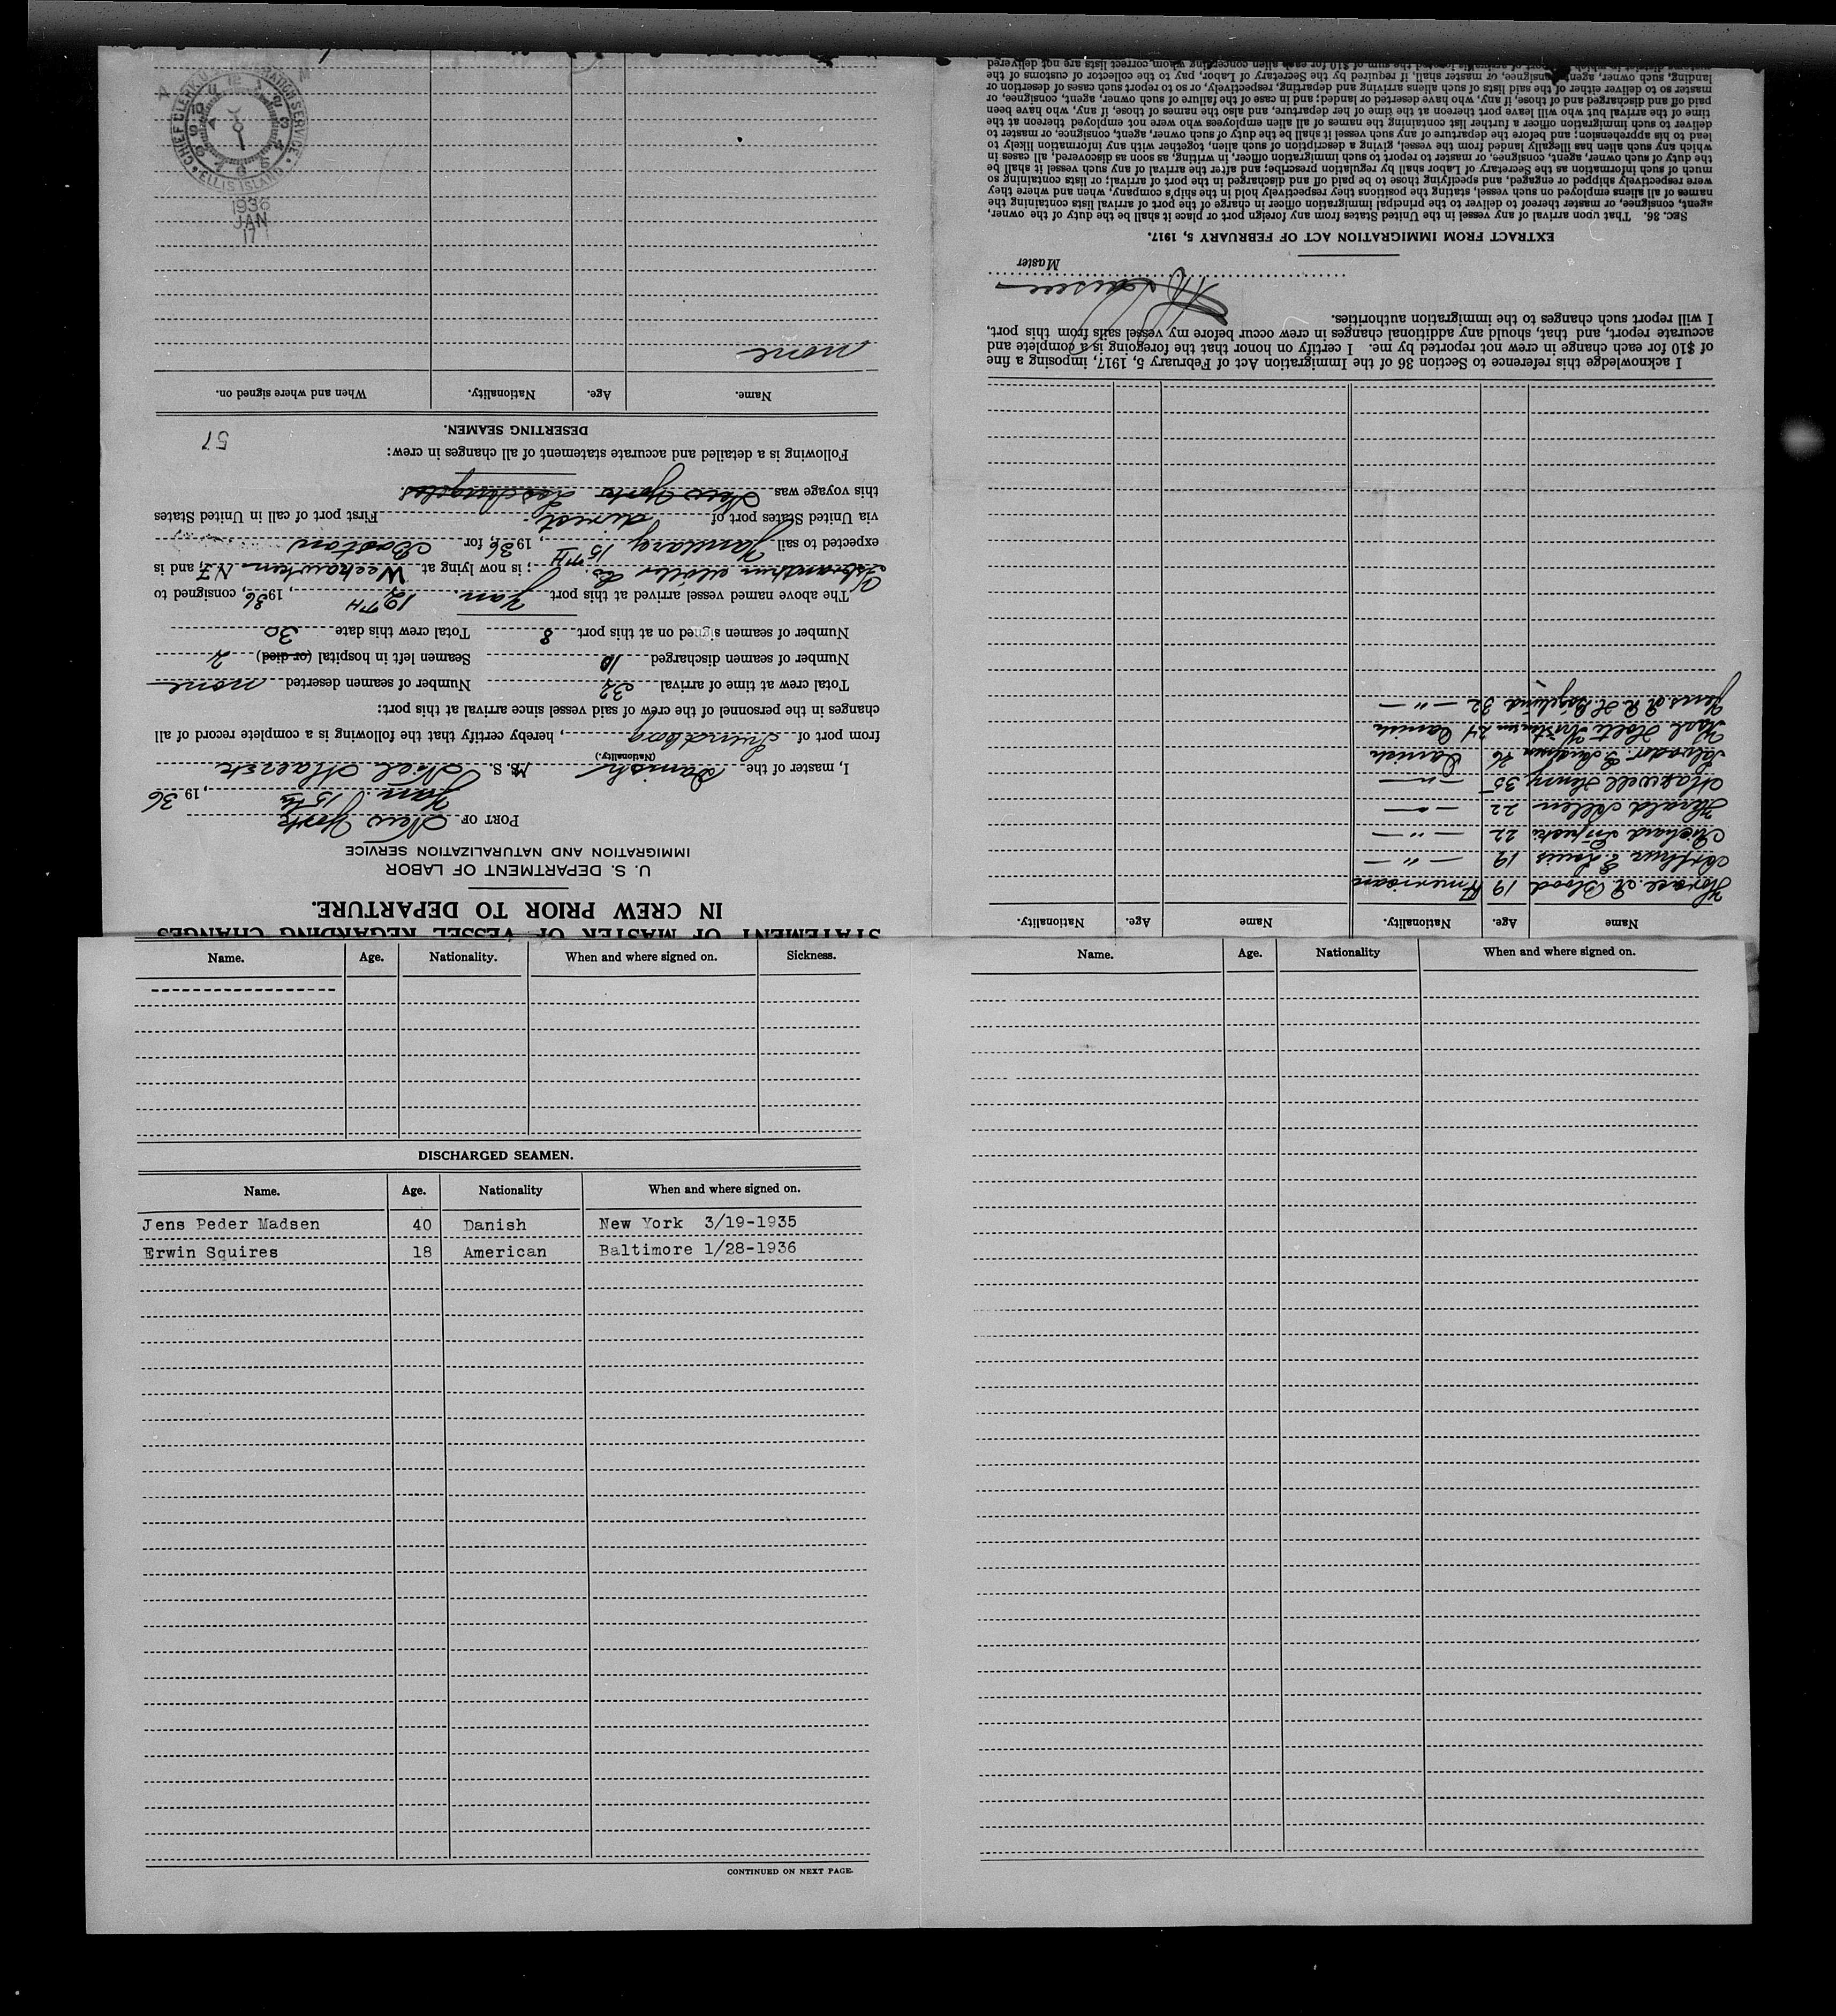 STATEMENT OF MASTER OF VESSEL REGARDING CHANGES
IN CREW PRIOR TO DEPARTURE.
U. S. DEPARTMENT OF LABOR
IMMIGRATION AND NATURALIZATION SERVICE
PORT OF New York
Jan. 15th, 1936
I, master of the Danish M. S. Niel Maersk
(Nationality.)
from port of Svendborg, hereby certify that the following is a complete record of all
changes in the personnel of the crew of said vessel since arrival at this port:
Total crew at time of arrival 34 Number of seamen deserted none
Number of seamen discharged 10 Seamen left in hospital (or died) 2
Number of seamen signed on at this port 8 Total crew this date 30
The above named vessel arrived at this port Jan. 12TH, 1936, consigned to
; is now lying at Weehawken N.J., and is
expected to sail January 15TH, 1936, for Boston
via United States port of direct. First port of call in United States
this voyage was New York Los Angeles.
Following is a detailed and accurate statement of all changes in crew:
57
DESERTING SEAMEN.
Name. Age. Nationality. When and where signed on.
none
17
JAN
1936
CHIEF CLERK U.S. IMMIGRATION SERVICE • ELLIS ISLAND •
Name Age. Nationality. Name Age. Nationality.
Horace A. Blood 19 American
Arthur E. Louis 19 — " —
Richard 22 — " —
Harald Allen 22 — " —
Maxwell Henry 35 — " —
26 Danish
Holst Kristensen 24 Danish
Jens A. R. H. 32 — " —
I acknowledge this reference to Section 36 of the Immigration Act of February 5, 1917, imposing a fine
of $10 for each change in crew not reported by me. I certify on honor that the foregoing is a complete and
accurate report, and that, should any additional changes in crew occur before my vessel sails from this port,
I will report such changes to the immigration authorities.
Master
EXTRACT FROM IMMIGRATION ACT OF FEBRUARY 5, 1917.
SEC. 36. That upon arrival of any vessel in the United States from any foreign port or place it shall be the duty of the owner,
agent, consignee, or master thereof to deliver to the principal immigration officer in charge of the port of arrival lists containing the
names of all aliens employed on such vessel, stating the positions they respectively hold in the ship's company, when and where they
were respectively shipped or engaged, and specifying those to be paid off and discharged in the port of arrival; or lists containing so
much of such information as the Secretary of Labor shall by regulation prescribe; and after the arrival of any such vessel it shall be
the duty of such owner, agent, consignee, or master to report to such immigration officer, in writing, as soon as discovered, all cases in
which any such alien has illegally landed from the vessel, giving a description of such alien, together with any information likely to
lead to his apprehension; and before the departure of any such vessel it shall be the duty of such owner, agent, consignee, or master to
deliver to such immigration officer a further list containing the names of all alien employees who were not employed thereon at the
time of the arrival but who will leave port thereon at the time of her departure, and also the names of those, if any, who have been
paid off and discharged and of those, if any, who have deserted or landed; and in case of the failure of such owner, agent, consignee, or
master so to deliver either of the said lists of such aliens arriving and departing, respectively, or so to report such cases of desertion or
landing, such owner, agent, consignee, or master shall, if required by the Secretary of Labor, pay to the collector of customs of the
the sum of $10 for each alien concerning whom correct lists are not delivered
Name. Age. Nationality. When and where signed on. Sickness.
DISCHARGED SEAMEN.
Name. Age. Nationality When and where signed on.
Jens Peder Madsen 40 Danish New York 3/19-1935
Erwin Squires 18 American Baltimore 1/28-1936
CONTINUED ON NEXT PAGE.
Name. Age. Nationality When and where signed on.